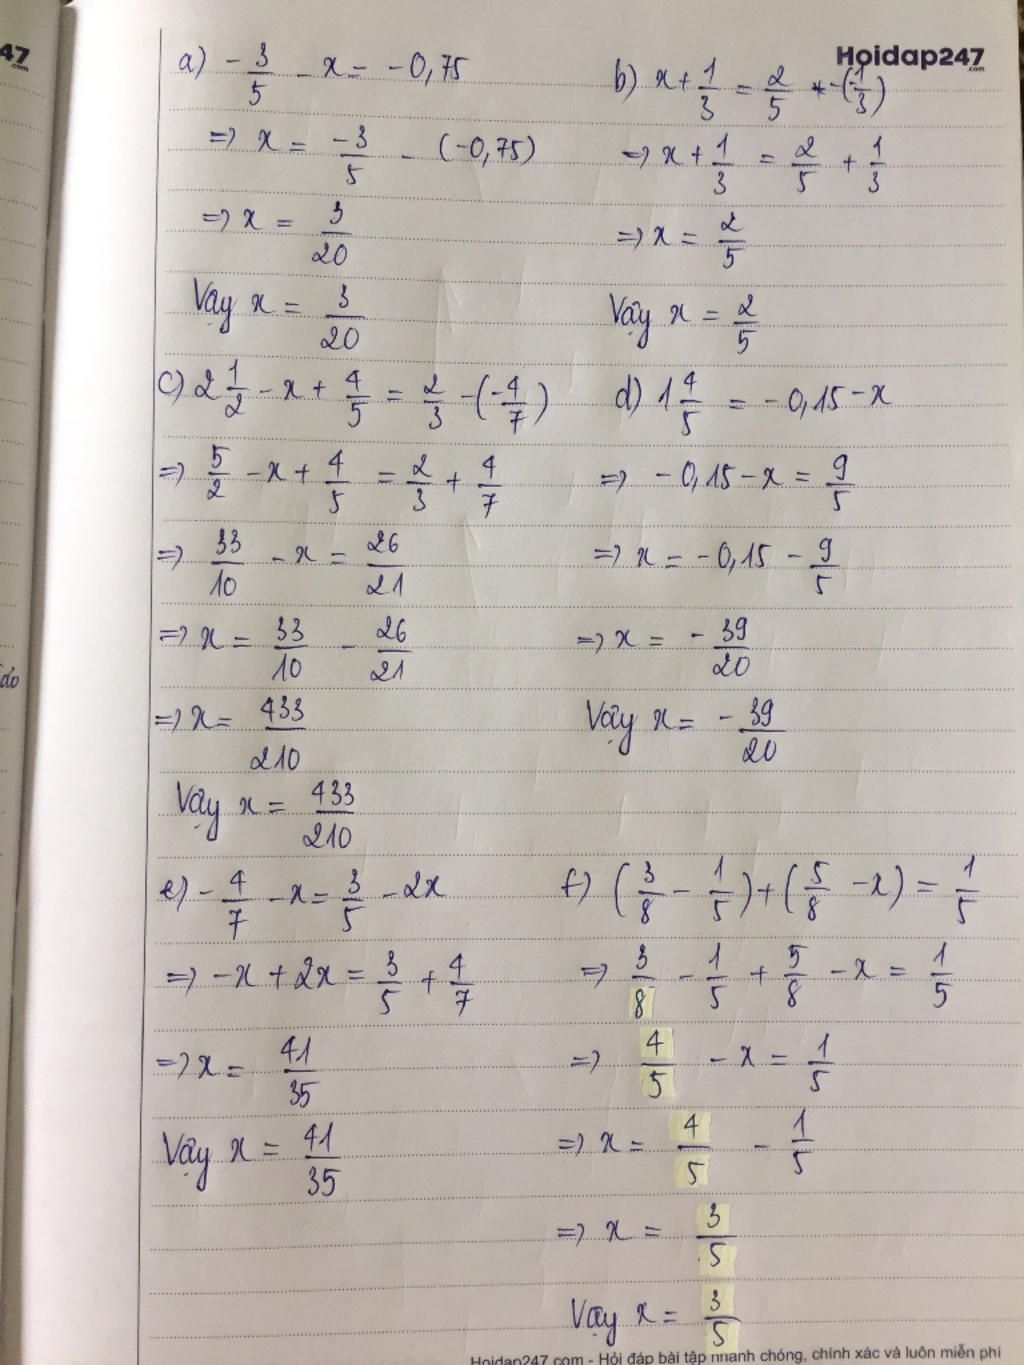 47
.com
Hoidap247
.com
a) -3/5 - x = -0,75
=> x = -3/5 - (-0,75)
=> x = 3/20
Vậy x = 3/20
b) x + 1/3 = 2/5 - (-1/3)
=> x + 1/3 = 2/5 + 1/3
=> x = 2/5
Vậy x = 2/5
c) 2 1/2 - x + 4/5 = 2/3 - (-4/7)
=> 5/2 - x + 4/5 = 2/3 + 4/7
=> 33/10 - x = 26/21
=> x = 33/10 - 26/21
=> x = 433/210
Vậy x = 433/210
d) 1 4/5 = -0,15 - x
=> -0,15 - x = 9/5
=> x = -0,15 - 9/5
=> x = -39/20
Vậy x = -39/20
e) -4/7 - x = 3/5 - 2x
=> -x + 2x = 3/5 + 4/7
=> x = 41/35
Vậy x = 41/35
f) (3/8 - 1/5) + (5/8 - x) = 1/5
=> 3/8 - 1/5 + 5/8 - x = 1/5
=> 4/5 - x = 1/5
=> x = 4/5 - 1/5
=> x = 3/5
Vậy x = 3/5
Hoidap247.com - Hỏi đáp bài tập nhanh chóng, chính xác và luôn miễn phí